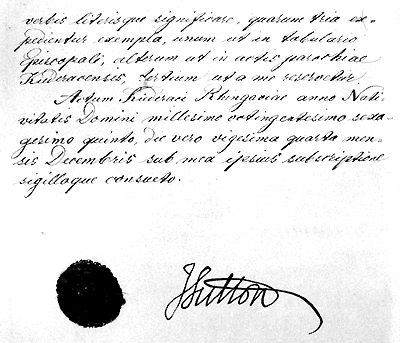 verbis literisque significare, quarum tria ex-
pedientur exempla, unum ut in tabulario
Episcopali, alterum ut in actis parochiae
Kiederacensis, tertium ut a me reservetur.
Actum Kiederaci Rhingaviae anno Nati-
vitatis Domini millesimo octingentesimo sexa-
gesimo quinto, die vero vigesima quarta men-
sis Decembris sub mea ipsius subscriptione
sigilloque consueto.
JSutton